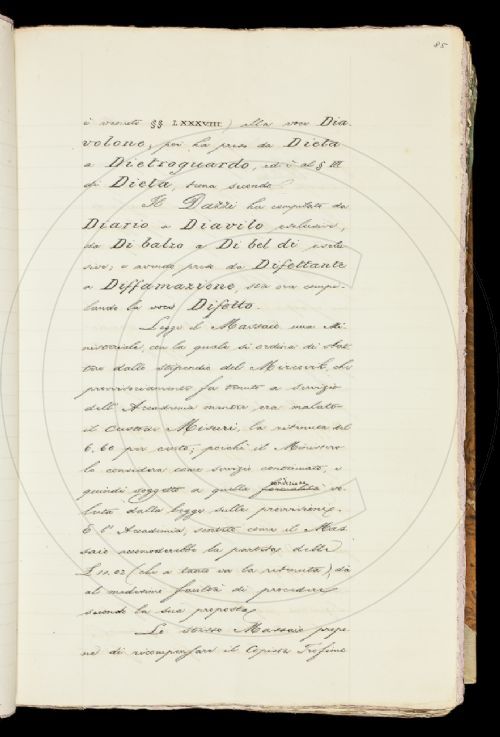 85
è venuto §§ LXXXVIII) alla voce Dia-
volone; poi ha preso da Dieta
a Dietroguardo, ed è al § III
di Dieta, tema secondo.
Il Dazzi ha compilato da
Diario a Diavilo esclusive,
da Di balzo a Di bel di esclu-
sive; e avendo preso da Difettante
a Diffamazione, sta ora compi-
lando la voce Difetto.
Legge il Massaio una Mi-
nisteriale, con la quale si ordina di
dallo stipendio del che
provvisoriamente fu tenuto a servizio
dell'Accademia mentre era malato
il Custode Misuri, la ritenuta del
6.60 per cento; perchè il Ministero
lo considera come servizio continuato, e
quindi soggetto a quella condizione vo-
luta dalla legge sulle provvisioni.
E l'Accademia, sentito come il Mas-
saio accomoderebbe la partita delle
£ 11.02 (che a tanto va la ritenuta), dà
al medesimo facoltà di procedere
secondo la sua proposta.
Lo stesso Massaio propo-
ne di ricompensare il Copista